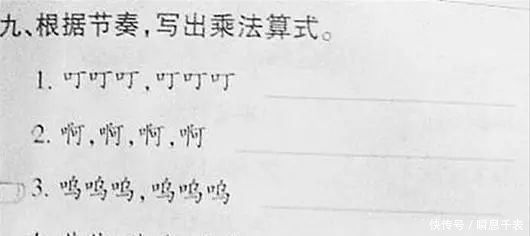 九、根据节奏,写出乘法算式。
1. 叮叮叮,叮叮叮
2. 啊,啊,啊,啊
3. 呜呜呜,呜呜呜
快传号/瞬息千表